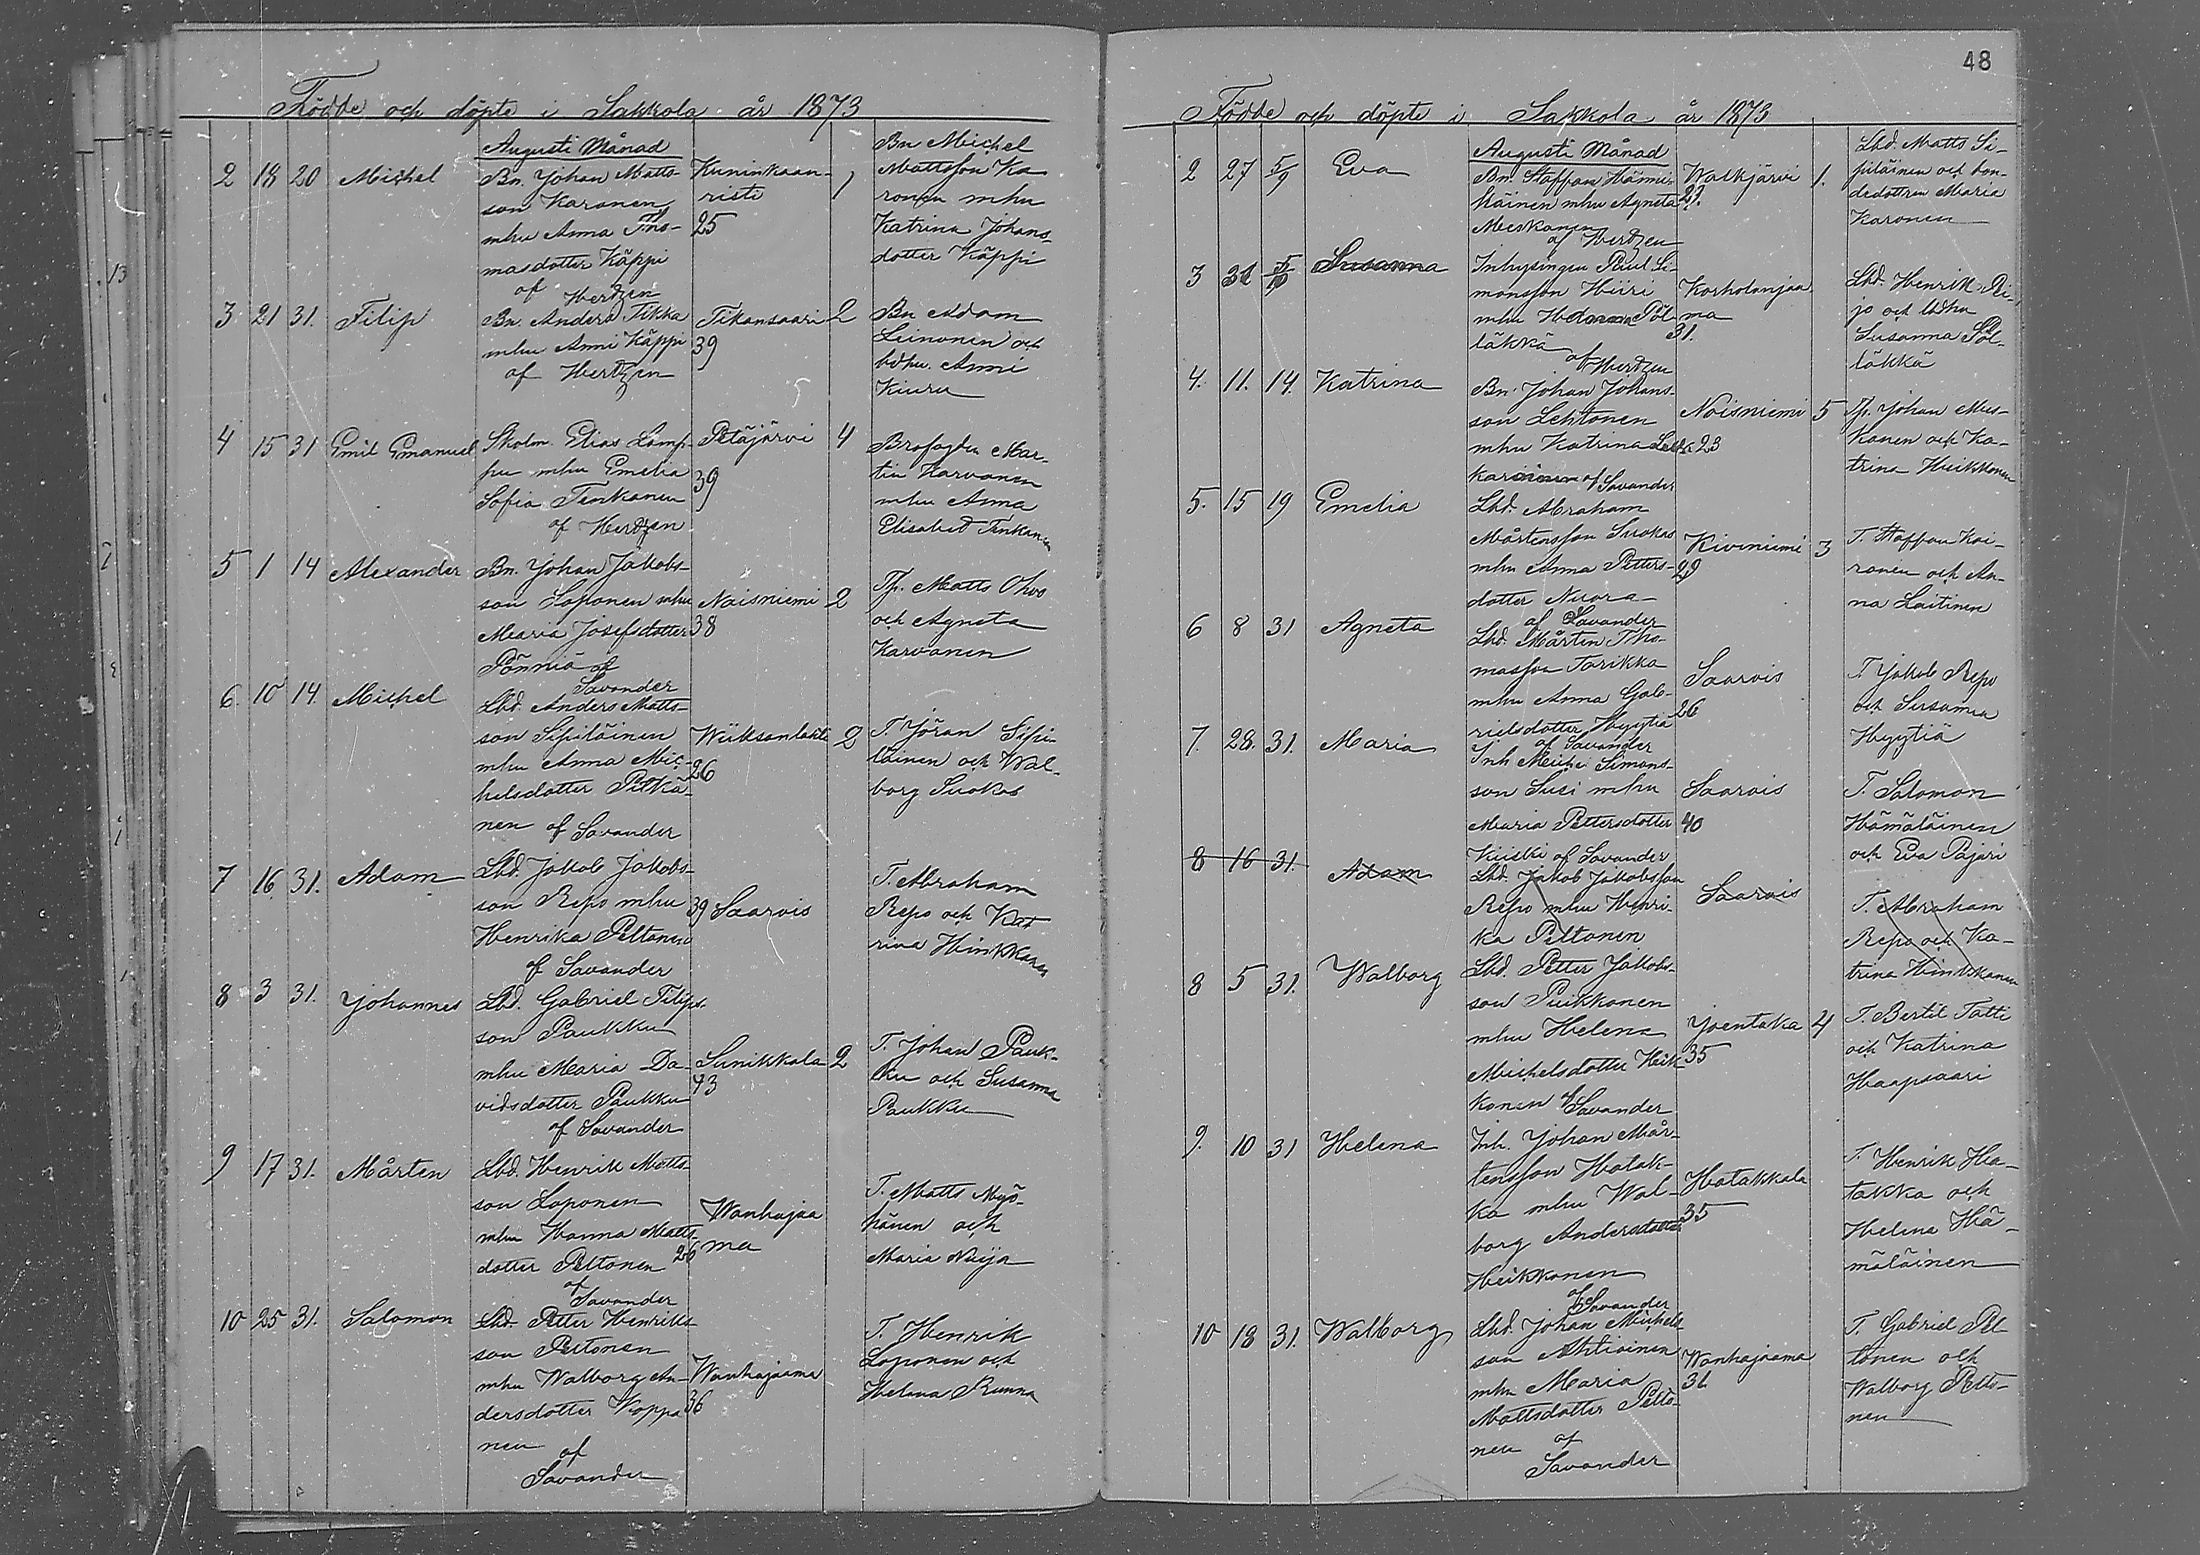 Födde och döpte i Sakkola år 1873
Augusti Månad
2 18 20 Michel
Bn. Johan Matts-
son Karonen
mhu Anna Tho-
masdotter Käppi
af Hertzen
Kuninkaan-
risti
25
1
Bn Michel
Mattsson Ka
ronen mhu
Katrina Johans-
dotter Käppi
3 21 31. Filip
Bn. Anders Tikka
mhu Anni Käppi
af Hertzen
Tikansaari
39
2
Bn Adam
Leinonen och
bdhu. Anni
Kiuru
4 15 31 Emil Emanuel
Skolm. Elias Lamp-
pu mhu Emelia
Sofia Tenkanen
af Hertzen
Petäjärvi
39
4
Brofogden Mar-
tin Karvonen
mhu Anna
Elisabet Tenkanen
5 1 14 Alexander
Bn. Johan Jakobs-
son Loponen mhu
Maria Josefsdotter
Pönniö af
Savander
Noisniemi
38
2
Tp. Matts Ohvo
och Agneta
Karvonen
6. 10 14. Michel
Lbd. Anders Matts-
son Sipiläinen
mhu Anna Mic-
helsdotter Pitkä-
nen af Savander
Wiiksanlahti
26
2
T. Jöran Sipi-
läinen och Wal-
borg Suokas
7 16 31. Adam
Lbd. Jakob Jakobs-
son Repo mhu
Henrika Peltonen
af Savander
39 Saarois
T. Abraham
Repo och Kat
rina Hinkkanen
8 3 31. Johannes
Lbd. Gabriel Filips-
son Paukku
mhu Maria Da-
vidsdotter Paukku
af Savander
Sunikkala
43
2
T. Johan Pauk-
ku och Susanna
Paukku
9 17 31. Mårten
Lbd. Henrik Matts-
son Loponen
mhu Hanna Matts-
dotter Peltonen
af
Savander
Wanhajaa
26 ma
T. Matts Myö-
hänen och
Maria Näija
10 25 31. Salomon
Lbd. Petter Henriks-
son Peltonen
mhu Walborg An-
dersdotter Koppa
nen
af
Savander
Wanhajaama
36
T. Henrik
Loponen och
Helena Runna
48
Födde och döpte i Sakkola år 1873
Augusti Månad
2 27 5/9 Eva
Bn. Staffan Hänni-
käinen mhu Agneta
Meskanen
af Hertzen
Walkjärvi
27.
1.
Lbd. Matts Si-
piläinen och bon-
dedottren Maria
Karonen
3 31 5/10 Susanna
Inhysingen Paul Si-
monsson Hiiri
mhu Helena Pöl-
läkkä
af Hertzen
Korholanjaa
ma
31.
Lbd. Henrik Ri-
jo och lbdhu
Susanna Pöl-
läkkä
4. 11. 14. Katrina
Bn. Johan Johans-
son Lehtonen
mhu Katrina Lais-
karainen af Savander
Noisniemi
23
5
Tp. Johan Mus-
konen och Ka-
trina Heikkonen
5. 15 19 Emelia
Lbd. Abraham
Mårtensson Suokas
mhu Anna Petters-
dotter Nuora
af Savander
Kiviniemi
29
3
T. Staffan Kai-
ronen och An-
na Laitinen
6 8 31 Agneta
Lbd. Mårten Tho-
masson Torikka
mhu Anna Gab-
rielsdotter Hyytiä
af Savander
Saarois
26
T. Jakob Repo
och Susanna
Hyytiä
7. 28. 31. Maria
Inh Michel Simons-
son Susi mhu
Maria Pettersdotter
Kiiski af Savander
Saarois
40
T. Salomon
Hämäläinen
och Eva Pajari
8 16 31. Adam
Lbd. Jakob Jakobsson
Repo mhu Henri-
ka Peltonen
Saarois
T. Abraham
Repo och Ka-
trina Hinkkanen
8 5 31. Walborg
Lbd. Petter Jakobs-
son Puikkonen
mhu Helena
Michelsdotter Heik-
konen af Savander
Joentaka
35
4
T. Bertil Tatti
och Katrina
Haapsaari
9. 10 31 Helena
Inh. Johan Mår-
tensson Hatak-
ka mhu Wal-
borg Andersdotter
Heikkonen
af
Savander
Hatakkala
35
T. Henrik Ha-
takka och
Helena Hä-
mäläinen
10 18 31. Walborg
Lbd. Johan Michels-
son Ahtiainen
mhu Maria
Mattsdotter Pelto-
nen af
Savander
Wanhajaama
31
T. Gabriel Pel
tonen och
Walborg Pelto-
nen